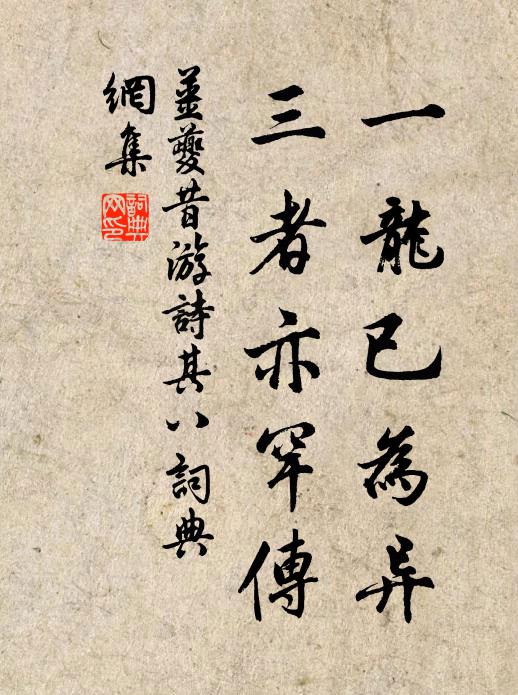 一龍已為异
三者亦罕傳
姜夔昔游詩其八詞典
網集
詞典網印